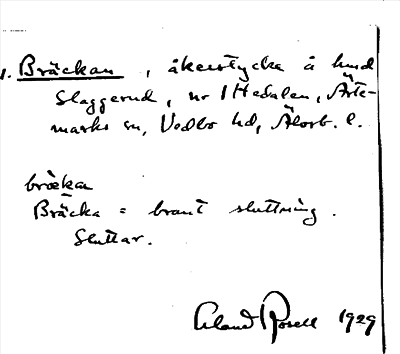 1. Bräckan, åkerstycke å hmd
Slaggerud, nr 1 Hedalen, Ärte-
marks sn, Vedbo hd, Älvsb. l.
bräkan
Bräcka = brant sluttning.
Sluttar.
Erland Rosell 1929